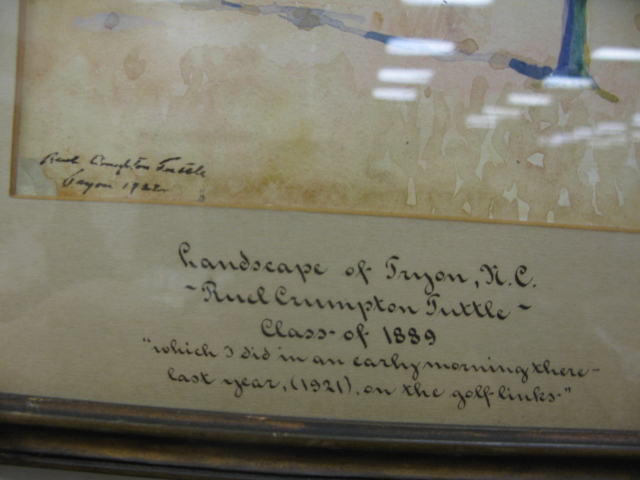 Ruel Crompton Tuttle
Tryon 1922
Landscape of Tryon, N.C.
~Ruel Crumpton Tuttle~
Class of 1889
"which I did in an early morning there
last year, (1921), on the golf-links"